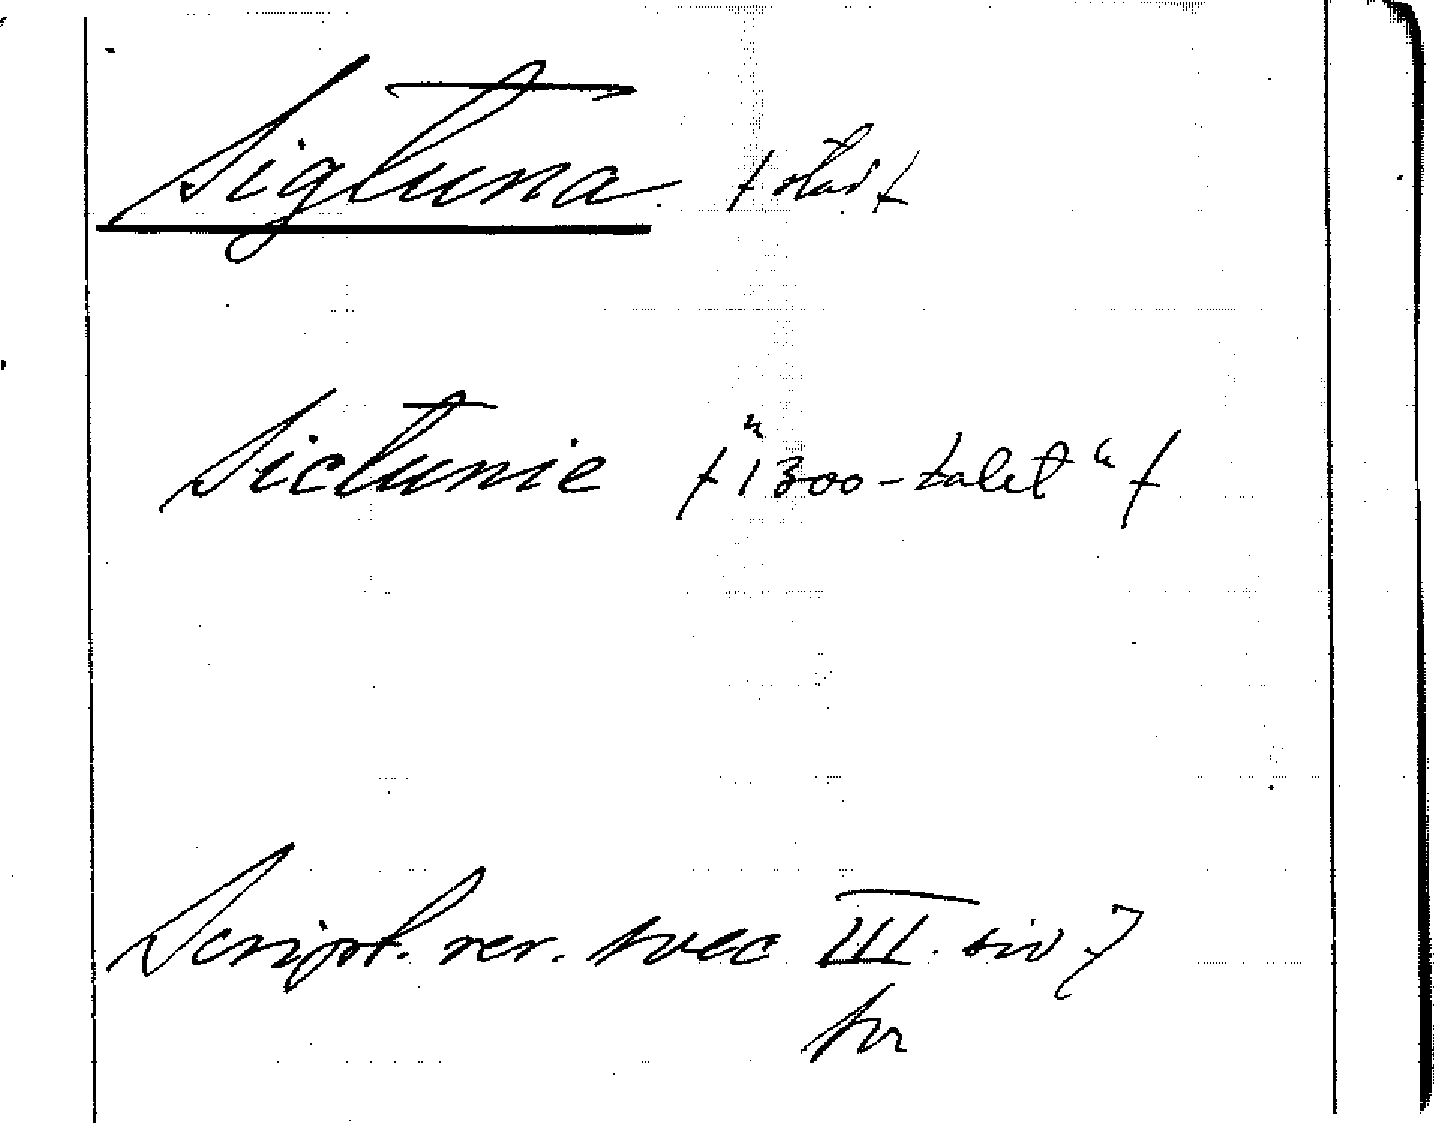 Sigtuna / stad /
Sictunie / "1300-talet" /
Script. rer. svec III. sid 7